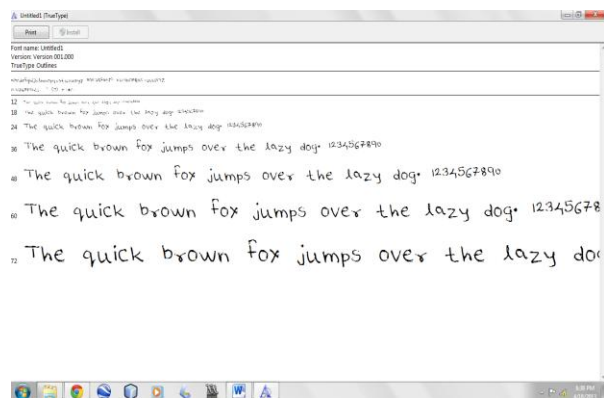 Untitled1 (TrueType)
Print Install
Font name: Untitled1
Version: Version 001.000
TrueType Outlines
12 The quick brown fox jumps over the lazy dog. 1234567890
18 The quick brown fox jumps over the lazy dog. 1234567890
24 The quick brown fox jumps over the lazy dog. 1234567890
36 The quick brown fox jumps over the lazy dog. 1234567890
48 The quick brown fox jumps over the lazy dog. 1234567890
60 The quick brown fox jumps over the lazy dog. 12345678
72 The quick brown fox jumps over the lazy do